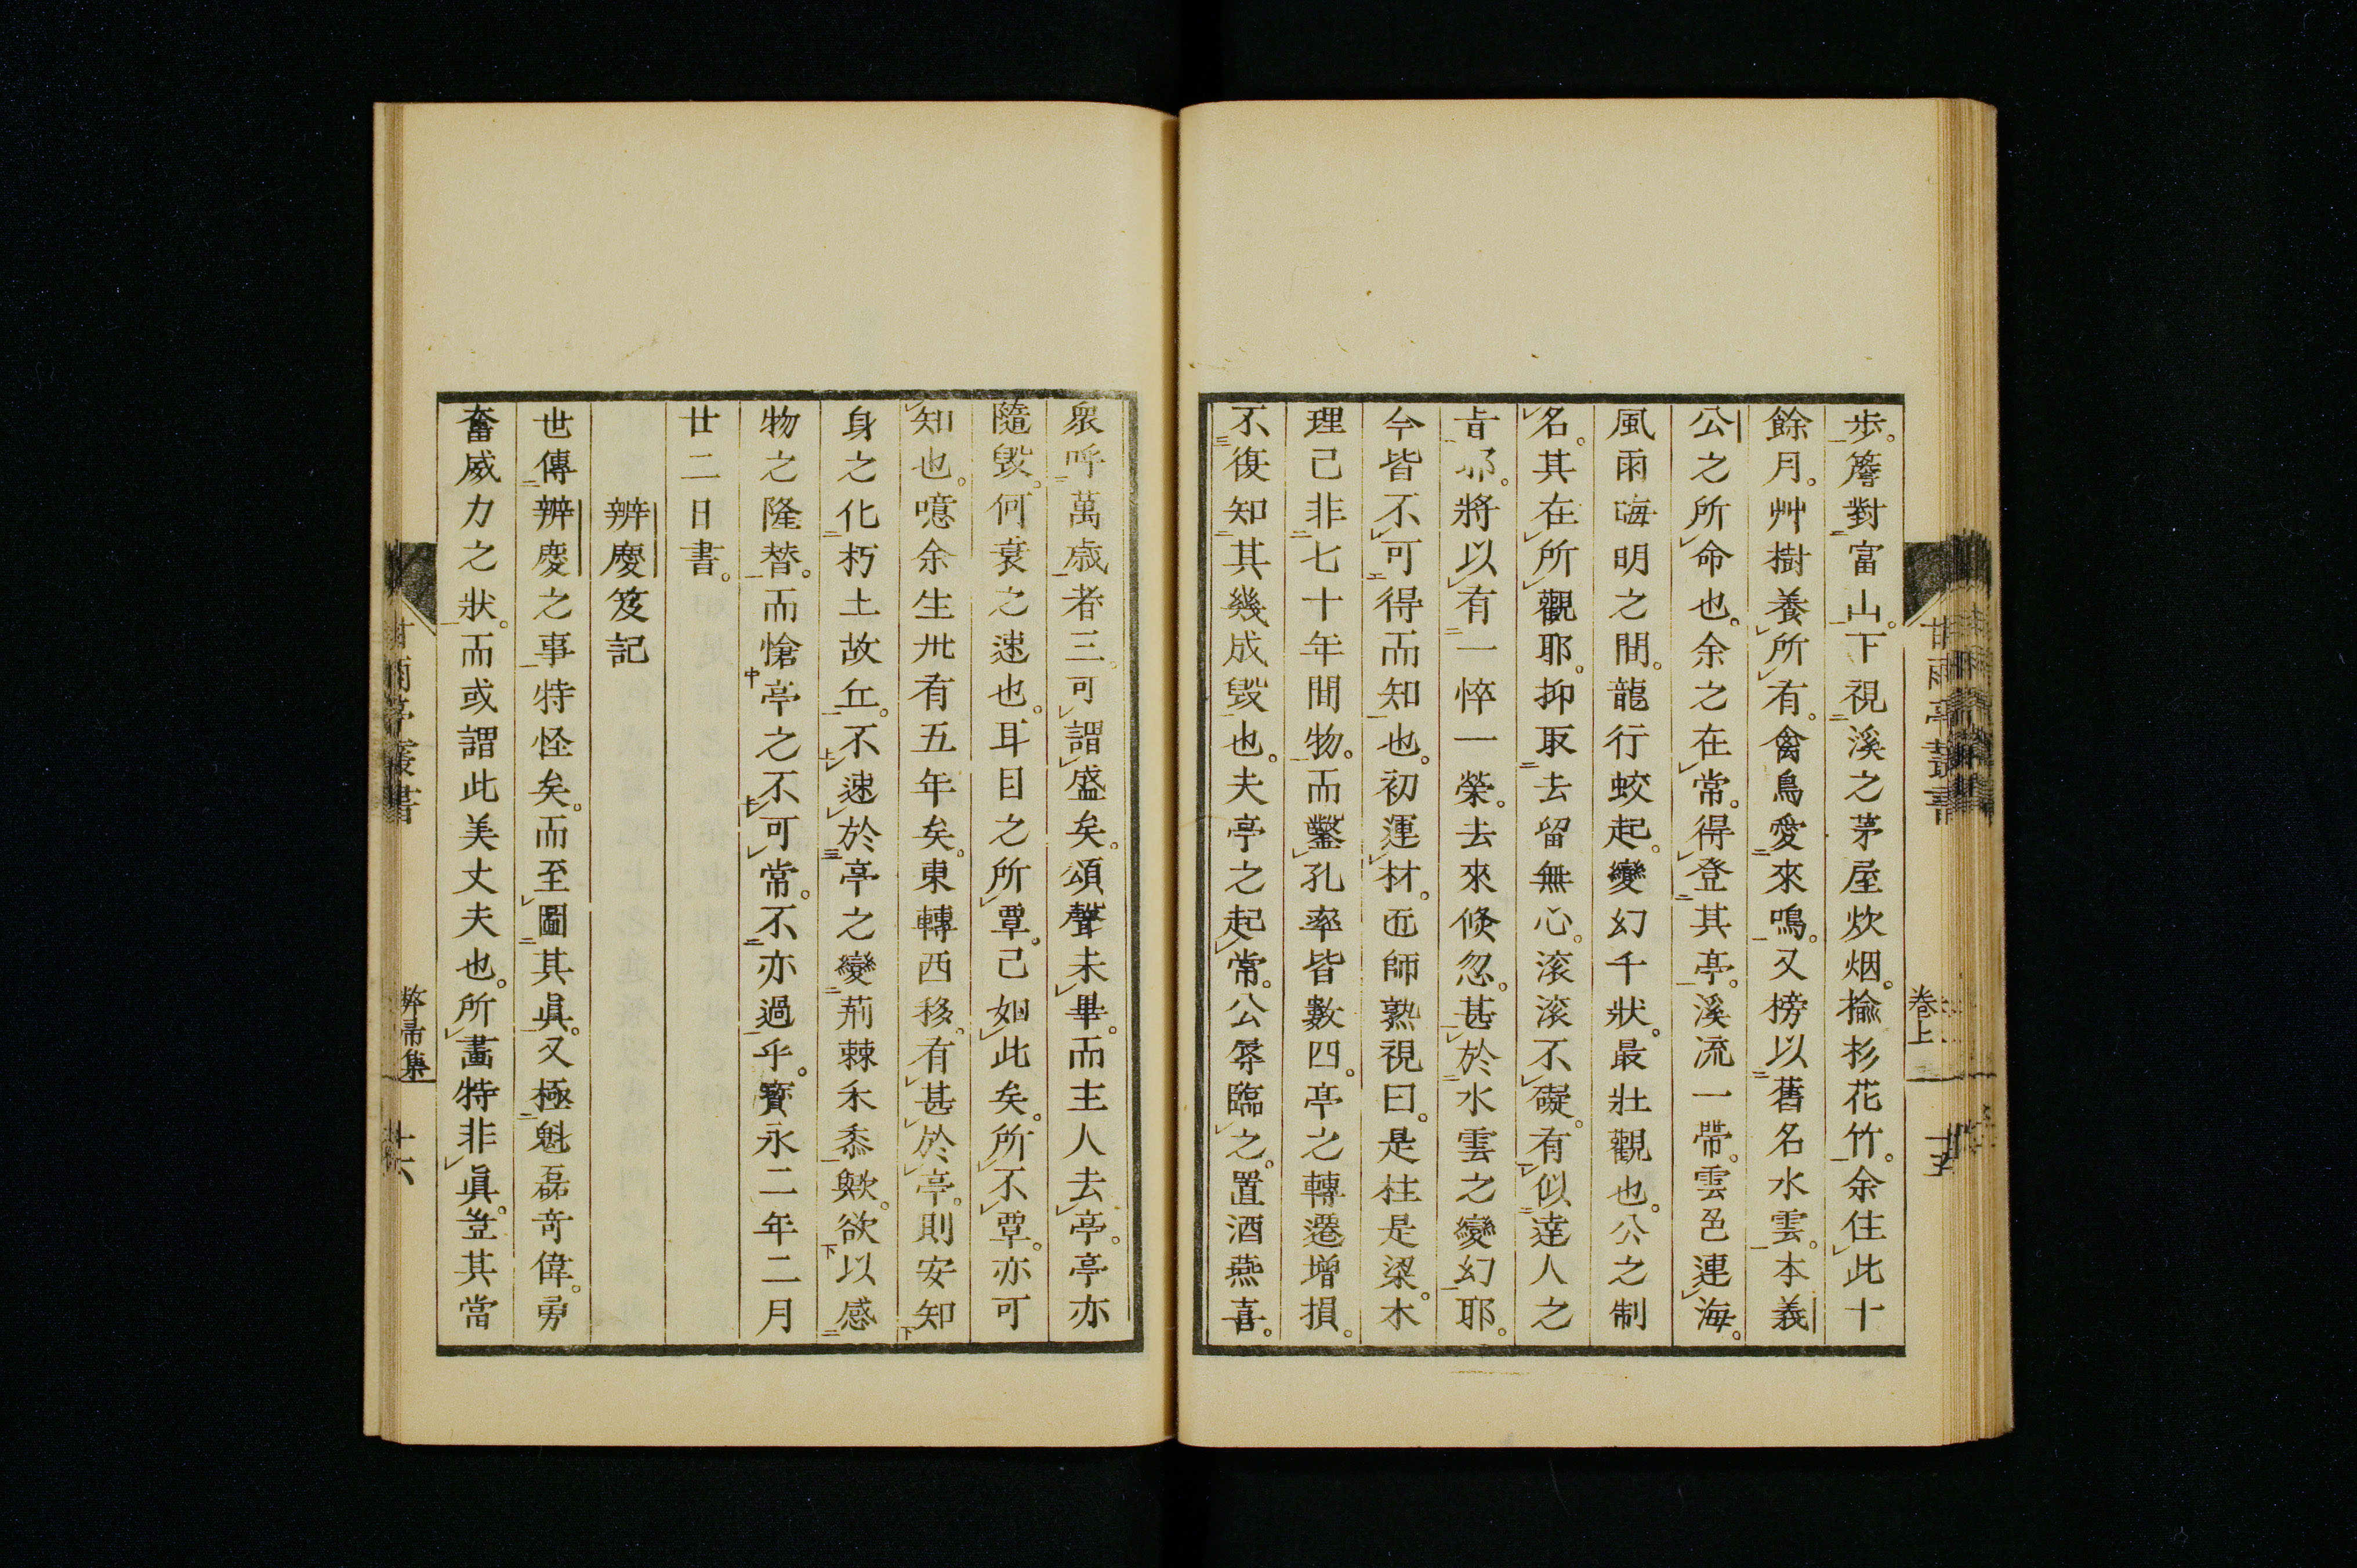 步。簷對富山。下視溪之茅屋炊烟。楡杉花竹。余住此十
餘月。艸樹養所有。禽鳥愛來鳴。又榜以舊名水雲。本義
公之所命也。余之在常。得登其亭。溪流一帶。雲色連海。
風雨晦明之間。龍行蛟起。變幻千狀。最壯觀也。公之制
名。其在所觀耶。抑取去留無心。滚滚不礙。有似達人之
旨耶。將以有一悴一榮。去來倏忽。甚於水雲之變幻耶。
今皆不可得而知也。初運材。匠師熟視曰。是柱是梁。木
理已非七十年間物。而鑿孔率皆數四。亭之轉遷增損。
不復知其幾成毀也。夫亭之起常。公辱臨之。置酒燕喜。
衆呼萬歳者三。可謂盛矣。頌聲未畢。而主人去亭。亭亦
隨毀。何衰之速也。耳目之所覃。已如此矣。所不覃。亦可
知也。噫余生卅有五年矣。東轉西移。有甚於亭。則安知
身之化朽土故丘。不速於亭之變荊棘禾黍歟。欲以感
物之隆替。而愴亭之不可常。不亦過乎。寶永二年二月
廿二日書。
辨慶笈記
世傳辨慶之事特怪矣。而至圖其眞。又極魁磊奇偉。勇
奮威力之狀。而或謂此美丈夫也。所畫特非眞。豈其當
甘雨亭叢書
卷上
甘雨亭叢書
弊帚集
廿六